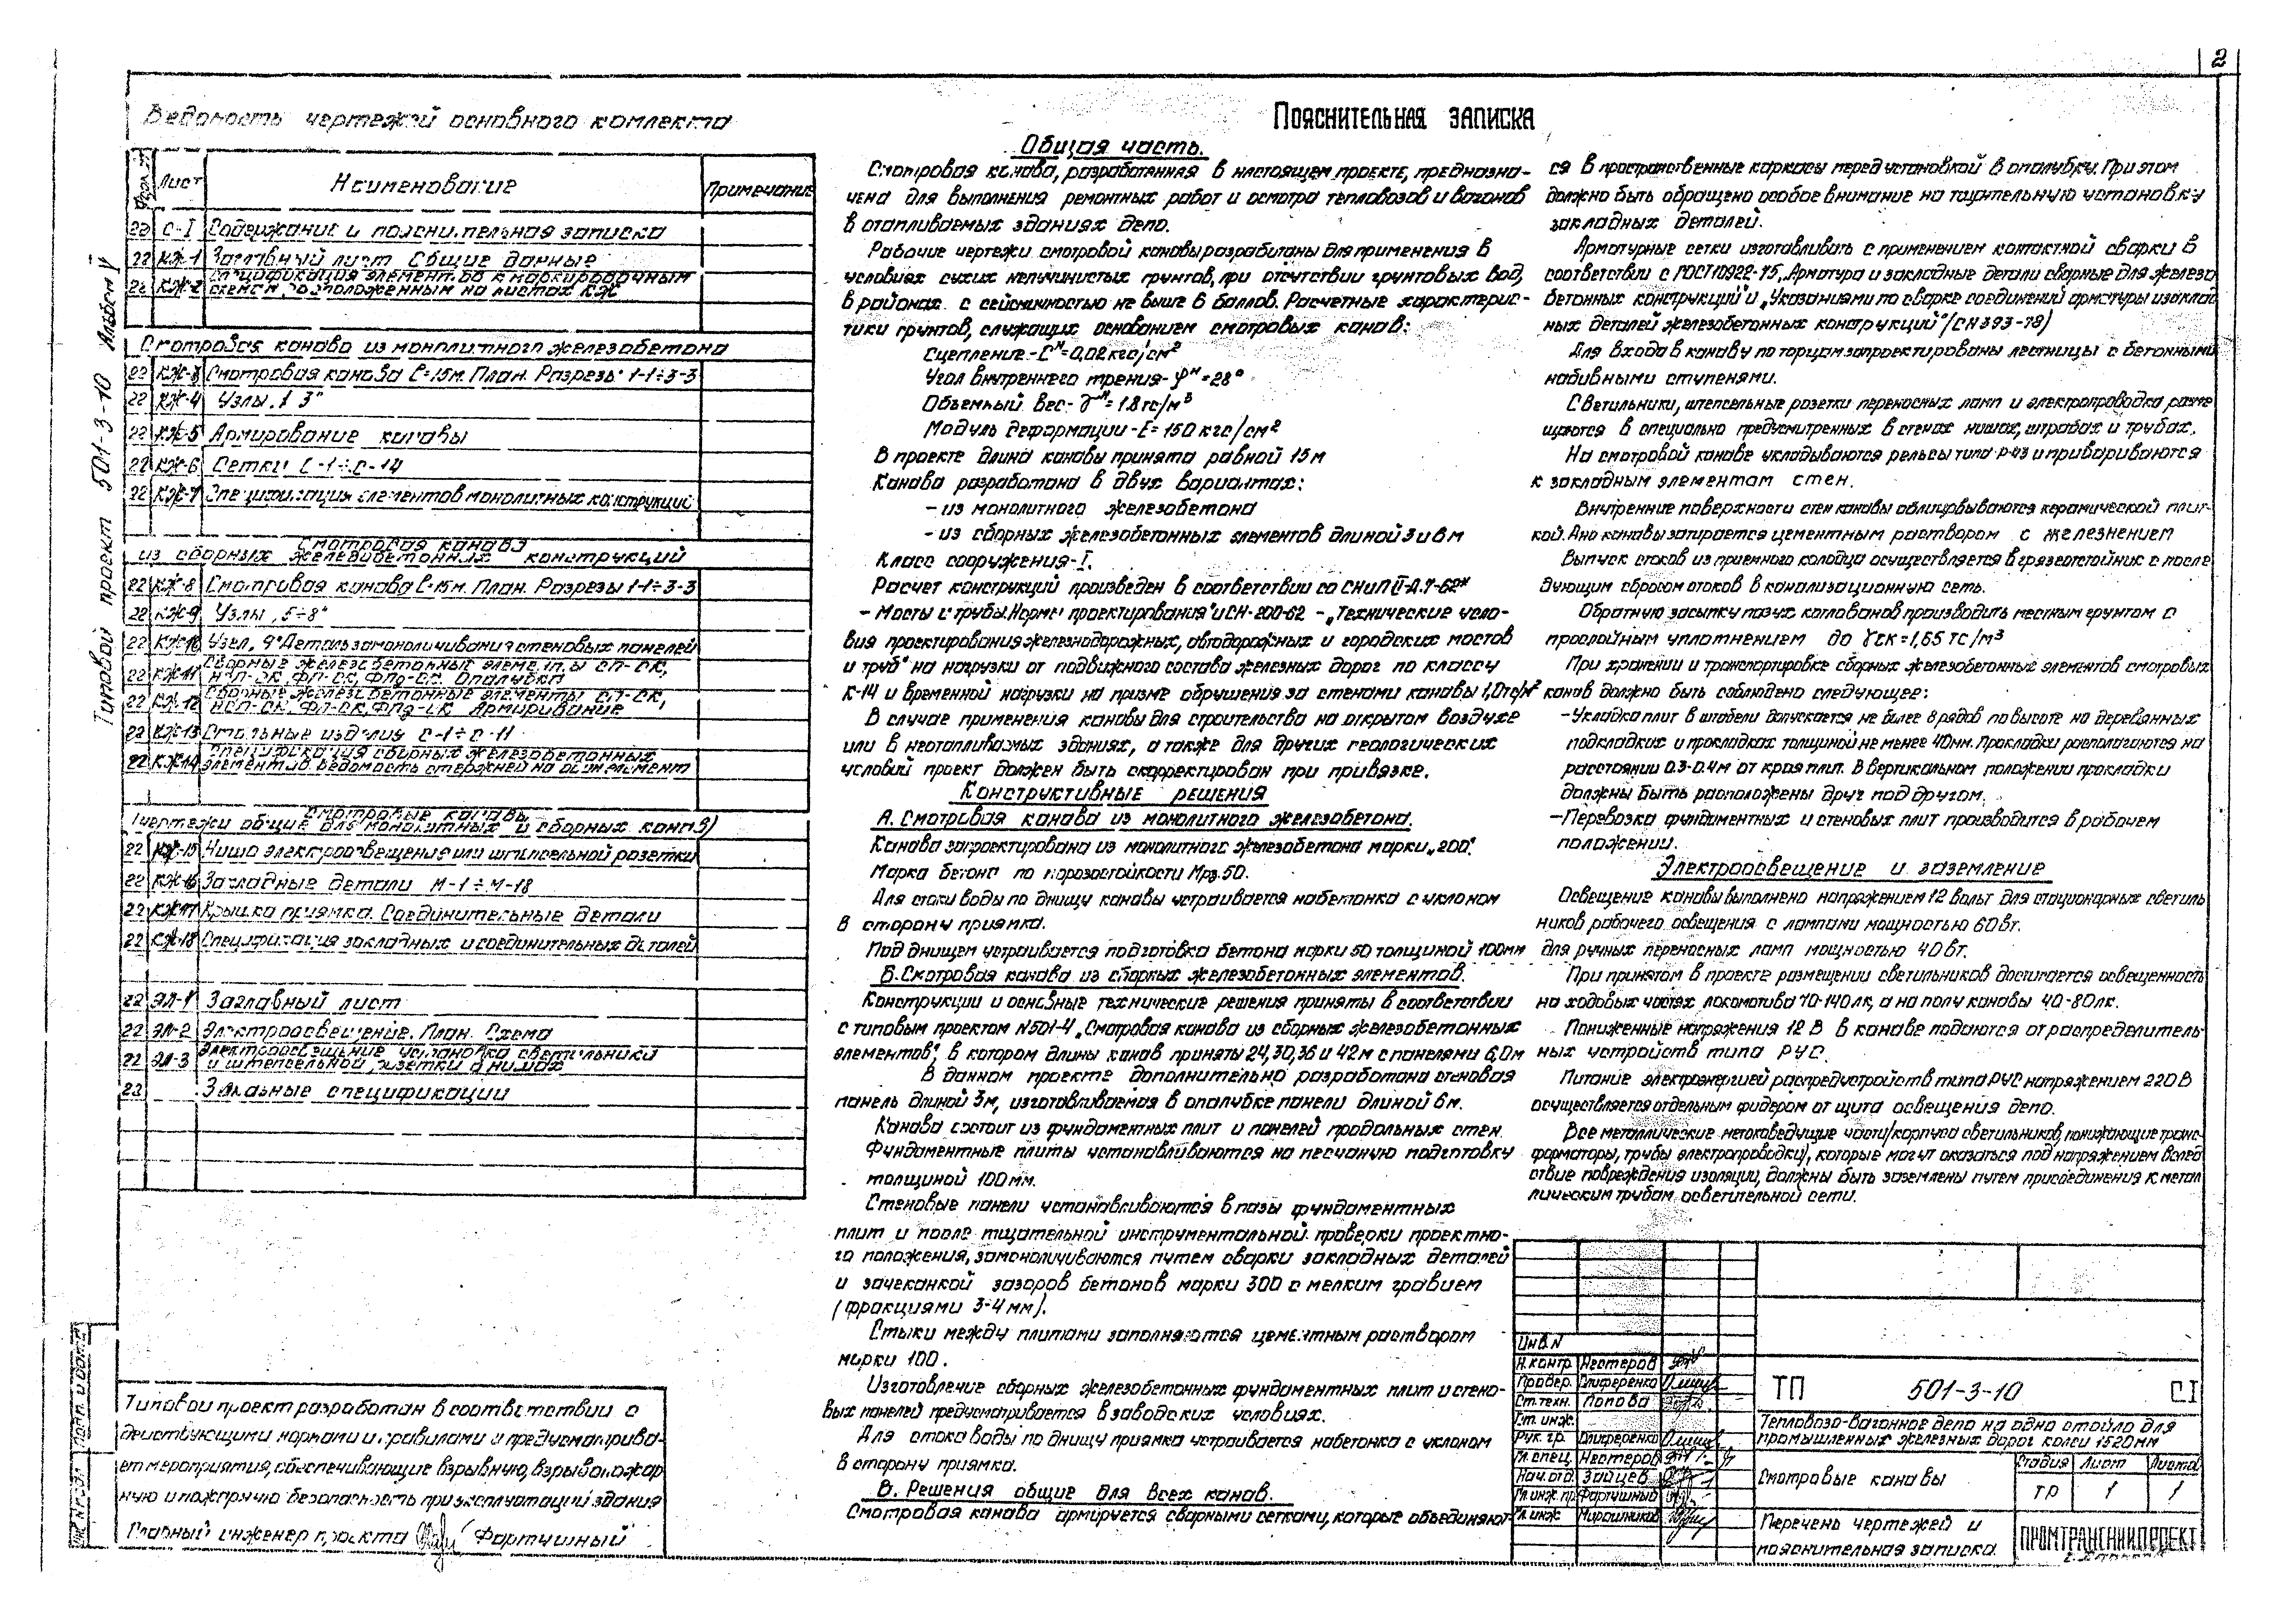 2
Типовой проект 501-3-10 Альбом V
Ведомость чертежей основного комлекта
Лист Наименование Примечание
22 С-I Содержание и пояснительная записка
22 КЖ-1 Заглавный лист Общие данные
22 КЖ-2 Спецификация элементов к маркировочным
схемам, расположенным на листах КЖ
Смотровая канава из монолитного железобетона
22 КЖ-3 Смотровая канава ℓ=15м. План. Разрезы 1-1÷3-3
22 КЖ-4 Узлы „1 3"
22 КЖ-5 Армирование канавы
22 КЖ-6 Сетки С-1÷С-14
22 КЖ-7 Спецификация элементов монолитных конструкций
Смотровая канава
из сборных железобетонных конструкций
22 КЖ-8 Смотровая канава ℓ-15м. План. Разрезы 1-1÷3-3
22 КЖ-9 Узлы „5÷8"
22 КЖ-10 Узел „9" Деталь замоноличивания стеновых панелей
22 КЖ-11 Сборные железобетонные элементы СП-СК,
НСП-СК, ФП-СК, ФПд-СК. Опалубка
22 КЖ-12 Сборные железобетонные элементы СП-СК,
НСП-СК, ФП-СК, ФПд-СК Армирование
22 КЖ-13 Стальные изделия С-1÷С-11
22 КЖ-14 Спецификация сборных железобетонных
элементов ведомость стержней на один элемент
Смотровые канавы
(чертежи общие для монолитных и сборных канав)
22 КЖ-15 Ниша электроосвещения или штепсельной розетки
22 КЖ-16 Закладные детали М-1÷М-18
22 КЖ-17 Крышка приямка. Соединительные детали
22 КЖ-18 Спецификация закладных и соединительных деталей
22 ЭЛ-1 Заглавный лист
22 ЭЛ-2 Электроосвещение. План. Схема
22 ЭЛ-3 Электроосвещение установка светильника
и штепсельной розетки в нишах
22 Заказные спецификации
Типовой проект разработан в соответствии с
действующими нормами и правилами и предусматрива-
ет мероприятия, обеспечивающие взрывную, взрывопожар
ную и пожарную безопасность при эксплуатации здания
Главный инженер проекта Фартушный
Пояснительная записка
Общая часть.
Смотровая канава, разработанная в настоящем проекте, предназна-
чена для выполнения ремонтных работ и осмотра тепловозов и вагонов
в отапливаемых зданиях депо.
Рабочие чертежи смотровой канавы разработаны для применения в
условиях сухих непучинистых грунтов, при отсутствии грунтовых вод,
в районах с сейсмичностью не выше 6 баллов. Расчетные характерис-
тики грунтов, служащих основанием смотровых канав:
Сцепление - Cᴴ=0,02 кгс/см²
Угол внутреннего трения - φᴴ=28°
Объемный вес - γᴴ=1.8 тс/м³
Модуль деформации - E=150 кгс/см²
В проекте длина канавы принята равной 15м
Канава разработана в двух вариантах:
- из монолитного железобетона
- из сборных железобетонных элементов длиной 3 и 6м
Класс сооружения - I.
Расчет конструкций произведен в соответствии со СНиП II-Д.7-62*
- Мосты и трубы. Нормы проектирования" и СН-200-62 - „Технические усло-
вия проектирования железнодорожных, автодорожных и городских мостов
и труб" на нагрузки от подвижного состава железных дорог по классу
К-14 и временной нагрузки на призме обрушения за стенами канавы 1,0тс/м²
В случае применения канавы для строительства на открытом воздухе
или в неотапливаемых зданиях, а также для других геологических
условий проект должен быть скорректирован при привязке.
Конструктивные решения
А. Смотровая канава из монолитного железобетона.
Канава запроектирована из монолитного железобетона марки „200".
Марка бетона по морозостойкости Мрз.50.
Для стока воды по днищу канавы устраивается набетонка с уклоном
в сторону приямка.
Под днищем устраивается подготовка бетона марки 50 толщиной 100мм
Б. Смотровая канава из сборных железобетонных элементов.
Конструкции и основные технические решения приняты в соответствии
с типовым проектом №501-4 „Смотровая канава из сборных железобетонных
элементов", в котором длины канав приняты 24, 30, 36 и 42м с панелями 6,0м
В данном проекте дополнительно разработана стеновая
панель длиной 3м, изготавливаемая в опалубке панели длиной 6м.
Канава состоит из фундаментных плит и панелей продольных стен.
Фундаментные плиты устанавливаются на песчаную подготовку
толщиной 100мм.
Стеновые панели устанавливаются в пазы фундаментных
плит и после тщательной инструментальной проверки проектно-
го положения, замоноличиваются путем сварки закладных деталей
и зачеканкой зазоров бетонов марки 300 с мелким гравием
(фракциями 3-4мм).
Стыки между плитами заполняются цементным раствором
марки 100.
Изготовление сборных железобетонных фундаментных плит и стено-
вых панелей предусматривается в заводских условиях.
Для стока воды по днищу приямка устраивается набетонка с уклоном
в сторону приямка.
В. Решения общие для всех канав.
Смотровая канава армируется сварными сетками, которые объединяют-
ся в пространственные каркасы перед установкой в опалубку. При этом
должно быть обращено особое внимание на тщательную установку
закладных деталей.
Арматурные сетки изготавливать с применением контактной сварки в
соответствии с ГОСТ 10922-75 „Арматура и закладные детали сварные для железо
бетонных конструкций" и „Указаниями по сварке соединений арматуры и заклад
ных деталей железобетонных конструкций" (СН 393-78)
Для входа в канаву по торцам запроектированы лестницы с бетонными
набивными ступенями.
Светильники, штепсельные розетки переносных ламп и электропроводка разме
щаются в специально предусмотренных в стенах нишах, штрабах и трубах.
На смотровой канаве укладываются рельсы типа Р-43 и привариваются
к закладным элементам стен.
Внутренние поверхности стен канавы облицовываются керамической плит-
кой. Дно канавы затирается цементным раствором с железнением
Выпуск стоков из приемного колодца осуществляется в грязеотстойник с после
дующим сбросом стоков в канализационную сеть.
Обратную засыпку пазух котлованов производить местным грунтом с
прослойным уплотнением до γск=1,65 тс/м³
При хранении и транспортировке сборных железобетонных элементов смотровых
канав должно быть соблюдено следующее:
- Укладка плит в штабели допускается не более 8 рядов по высоте на деревянных
подкладках и прокладках толщиной не менее 40мм. Прокладки располагаются на
расстоянии 0.3-0.4м от края плит. В вертикальном положении прокладки
должны быть расположены друг под другом.
- Перевозка фундаментных и стеновых плит производится в рабочем
положении.
Электроосвещение и заземление
Освещение канавы выполнено напряжением 12 вольт для стационарных светиль
ников рабочего освещения с лампами мощностью 60вт.
для ручных переносных ламп мощностью 40вт.
При принятом в проекте размещении светильников достигается освещенность
на ходовых частях локомотива 70-140лк, а на полу канавы 40-80лк.
Пониженные напряжения 12 В в канаве подаются от распределитель-
ных устройств типа РУС.
Питание электроэнергией распредустройств типа РУС напряжением 220В
осуществляется отдельным фидером от щита освещения депо.
Все металлические нетоковедущие части (корпуса светильников, понижающие транс-
форматоры, трубы электропроводки), которые могут оказаться под напряжением вслед
ствие повреждения изоляции, должны быть заземлены путем присоединения к метал
лическим трубам осветительной сети.
Инв.N
Н.контр. Нестеров
Провер. Олиференко
Ст.техн. Попова
Ст. инж.
Рук. гр. Олиференко
Гл. спец. Нестеров
Нач.отд Зайцев
Гл.инж.пр. Фартушный
Гл.инж. Мирошников
ТП 501-3-10 С.I
Тепловозо-вагонное депо на одно стойло для
промышленных железных дорог колеи 1520мм
Смотровые канавы
Стадия Лист Листов
ТР 1 1
Перечень чертежей и
пояснительная записка.
ПРОМТРАНСНИИПРОЕКТ